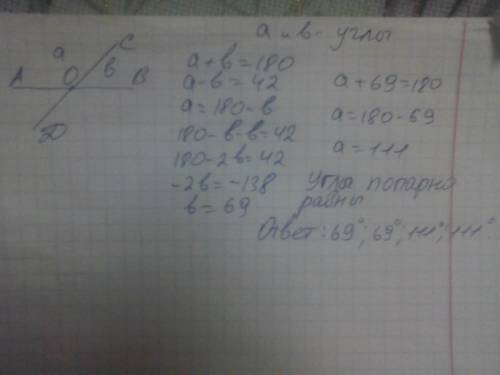 a и в - углы
a
C
A
O
в
B
D
a + в = 180
a - в = 42
a = 180 - в
180 - в - в = 42
180 - 2в = 42
-2в = -138
в = 69
a + 69 = 180
a = 180 - 69
a = 111
Углы попарно
равны
Ответ: 69°; 69°; 111°; 111°